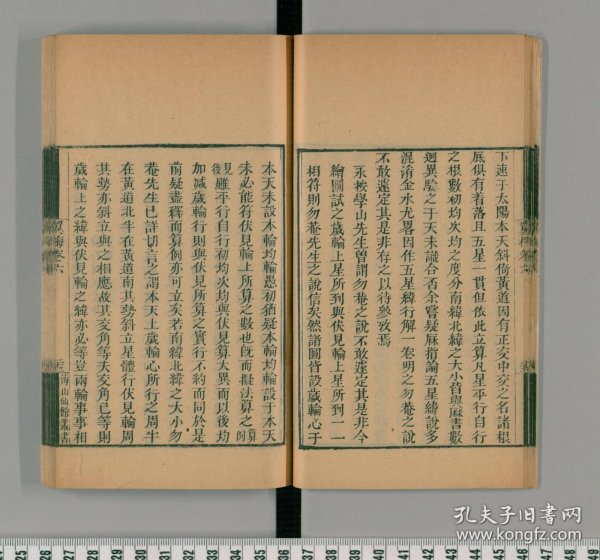 下速于太陽本天斜倚黃道因有正交中交之名諸根
底俱有着落且五星一貫但依此立算凡星平行自行
之根數初均次均之度分南緯北緯之大小皆與厤書數
迥異驗之于天未識合否余嘗疑厤指論五星緯說多
混淆金水尤畧因作五星緯行解一卷明之勿菴之說
不敢遽定其是非存之以待參攷焉
永按學山先生曽謂勿菴之說不敢遽定其是非今
繪圖試之歲輪上星所到與伏見輪上星所到一一
相符則勿菴先生之說信矣然諸圖皆設歲輪心于
本天未設本輪均輪愚初猶疑本輪均輪設于本天
未必能符伏見輪上所算之數也旣而擬法算之算例
見後雖平行自行初均次均與伏見算大異而以後均
加減歲輪行則與伏見所算之實行不約而同於是
前疑盡釋而算例亦可立矣若南緯北緯之大小勿
菴先生已詳切言之謂本天上歲輪心所行之周半
在黃道北半在黃道南其勢斜立星體行伏見輪周
其勢亦斜立與之相應故其交角等夫交角已等則
歲輪上之緯與伏見輪之緯亦必等豈兩輪事事相
卷六
海山仙館叢書
孔夫子旧书网
www.kongfz.com